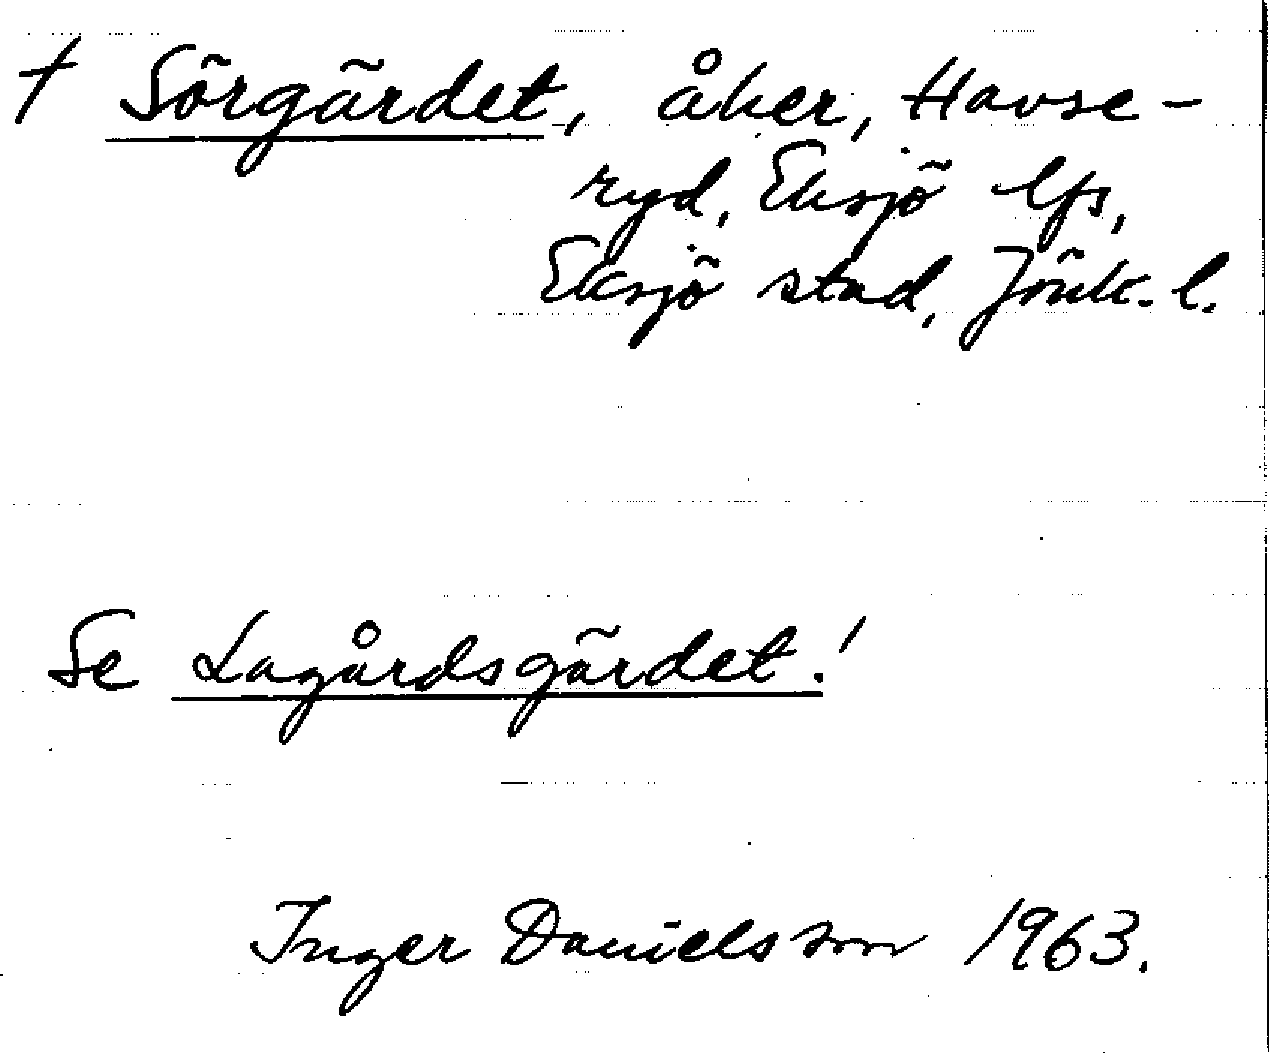 † Sörgärdet, åker, Havse-
ryd, Eksjö lfs,
Eksjö stad, Jönk. l.
Se Lagårdsgärdet!
Inger Danielsson 1963.